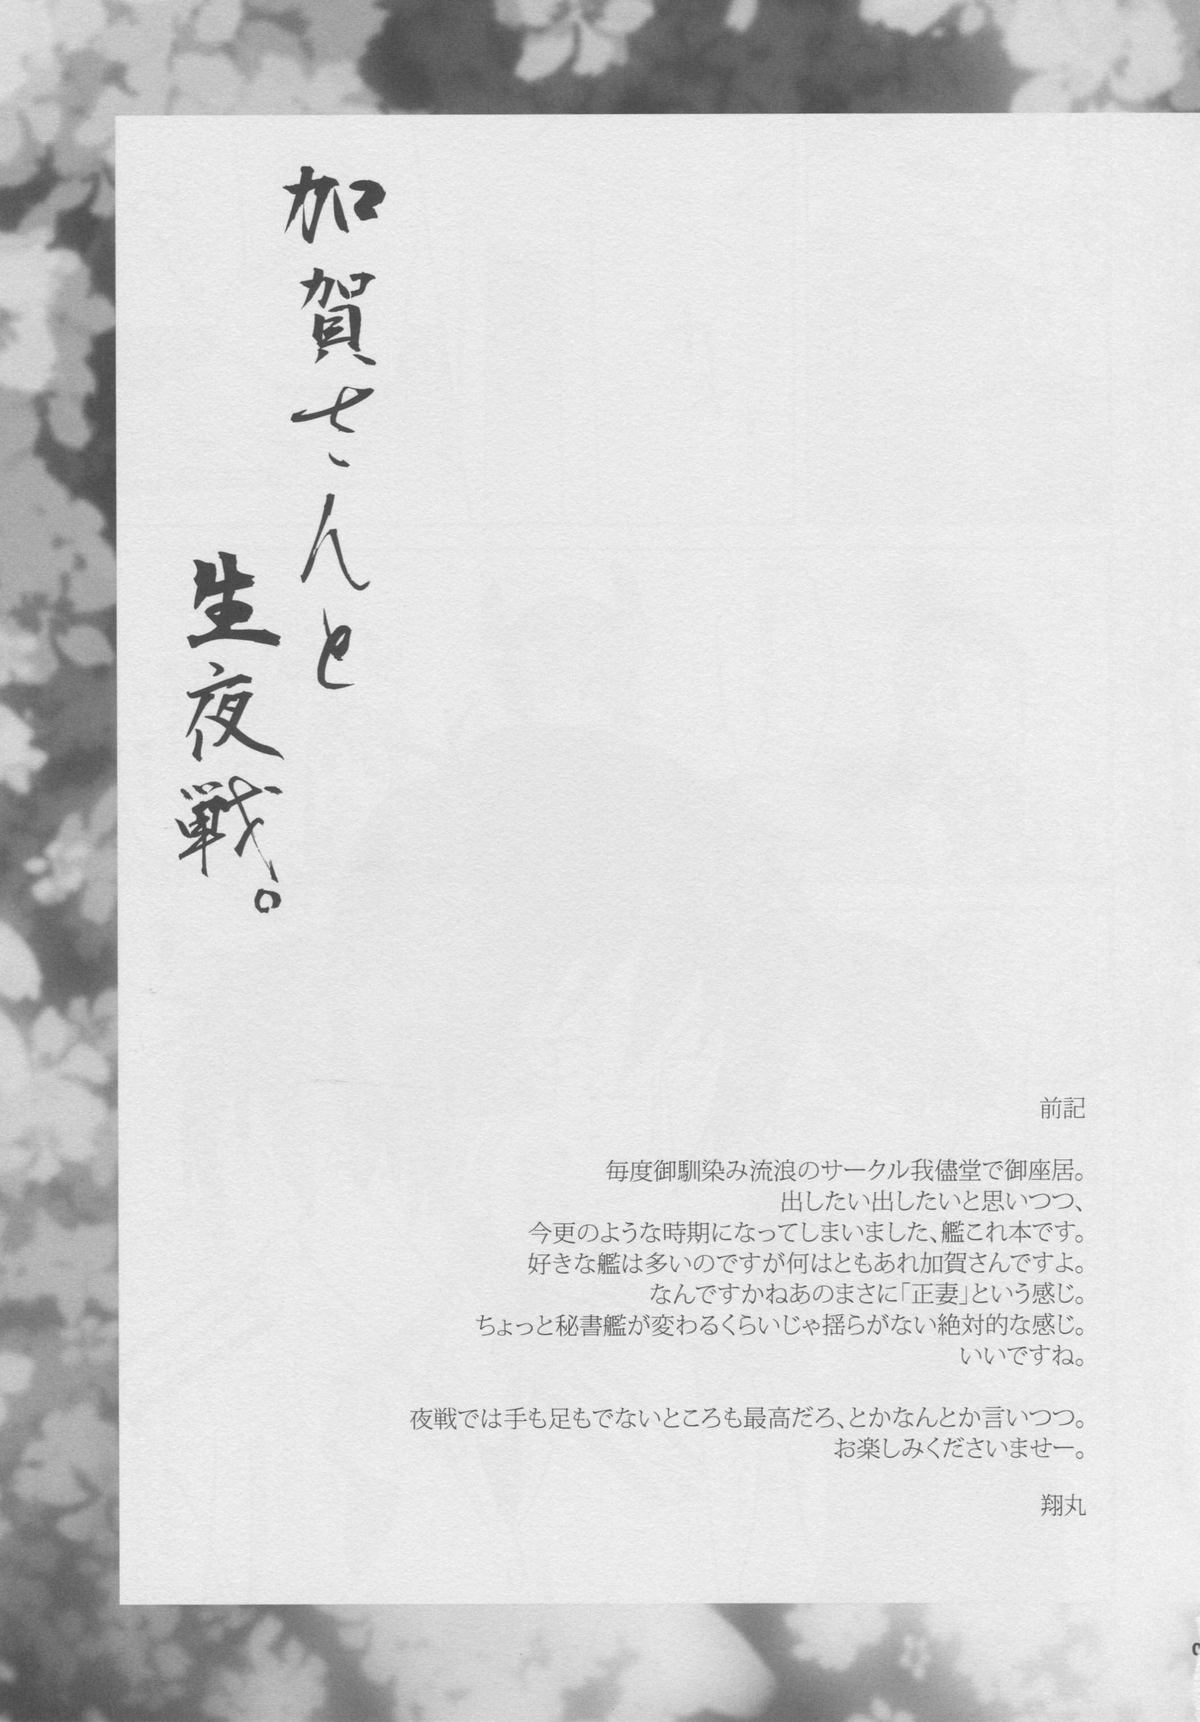 加賀さんと
生夜戦。
前記
毎度御馴染み流浪のサークル我儘堂で御座居。
出したい出したいと思いつつ、
今更のような時期になってしまいました、艦これ本です。
好きな艦は多いのですが何はともあれ加賀さんですよ。
なんですかねあのまさに「正妻」という感じ。
ちょっと秘書艦が変わるくらいじゃ揺らがない絶対的な感じ。
いいですね。
夜戦では手も足もでないところも最高だろ、とかなんとか言いつつ。
お楽しみくださいませー。
翔丸